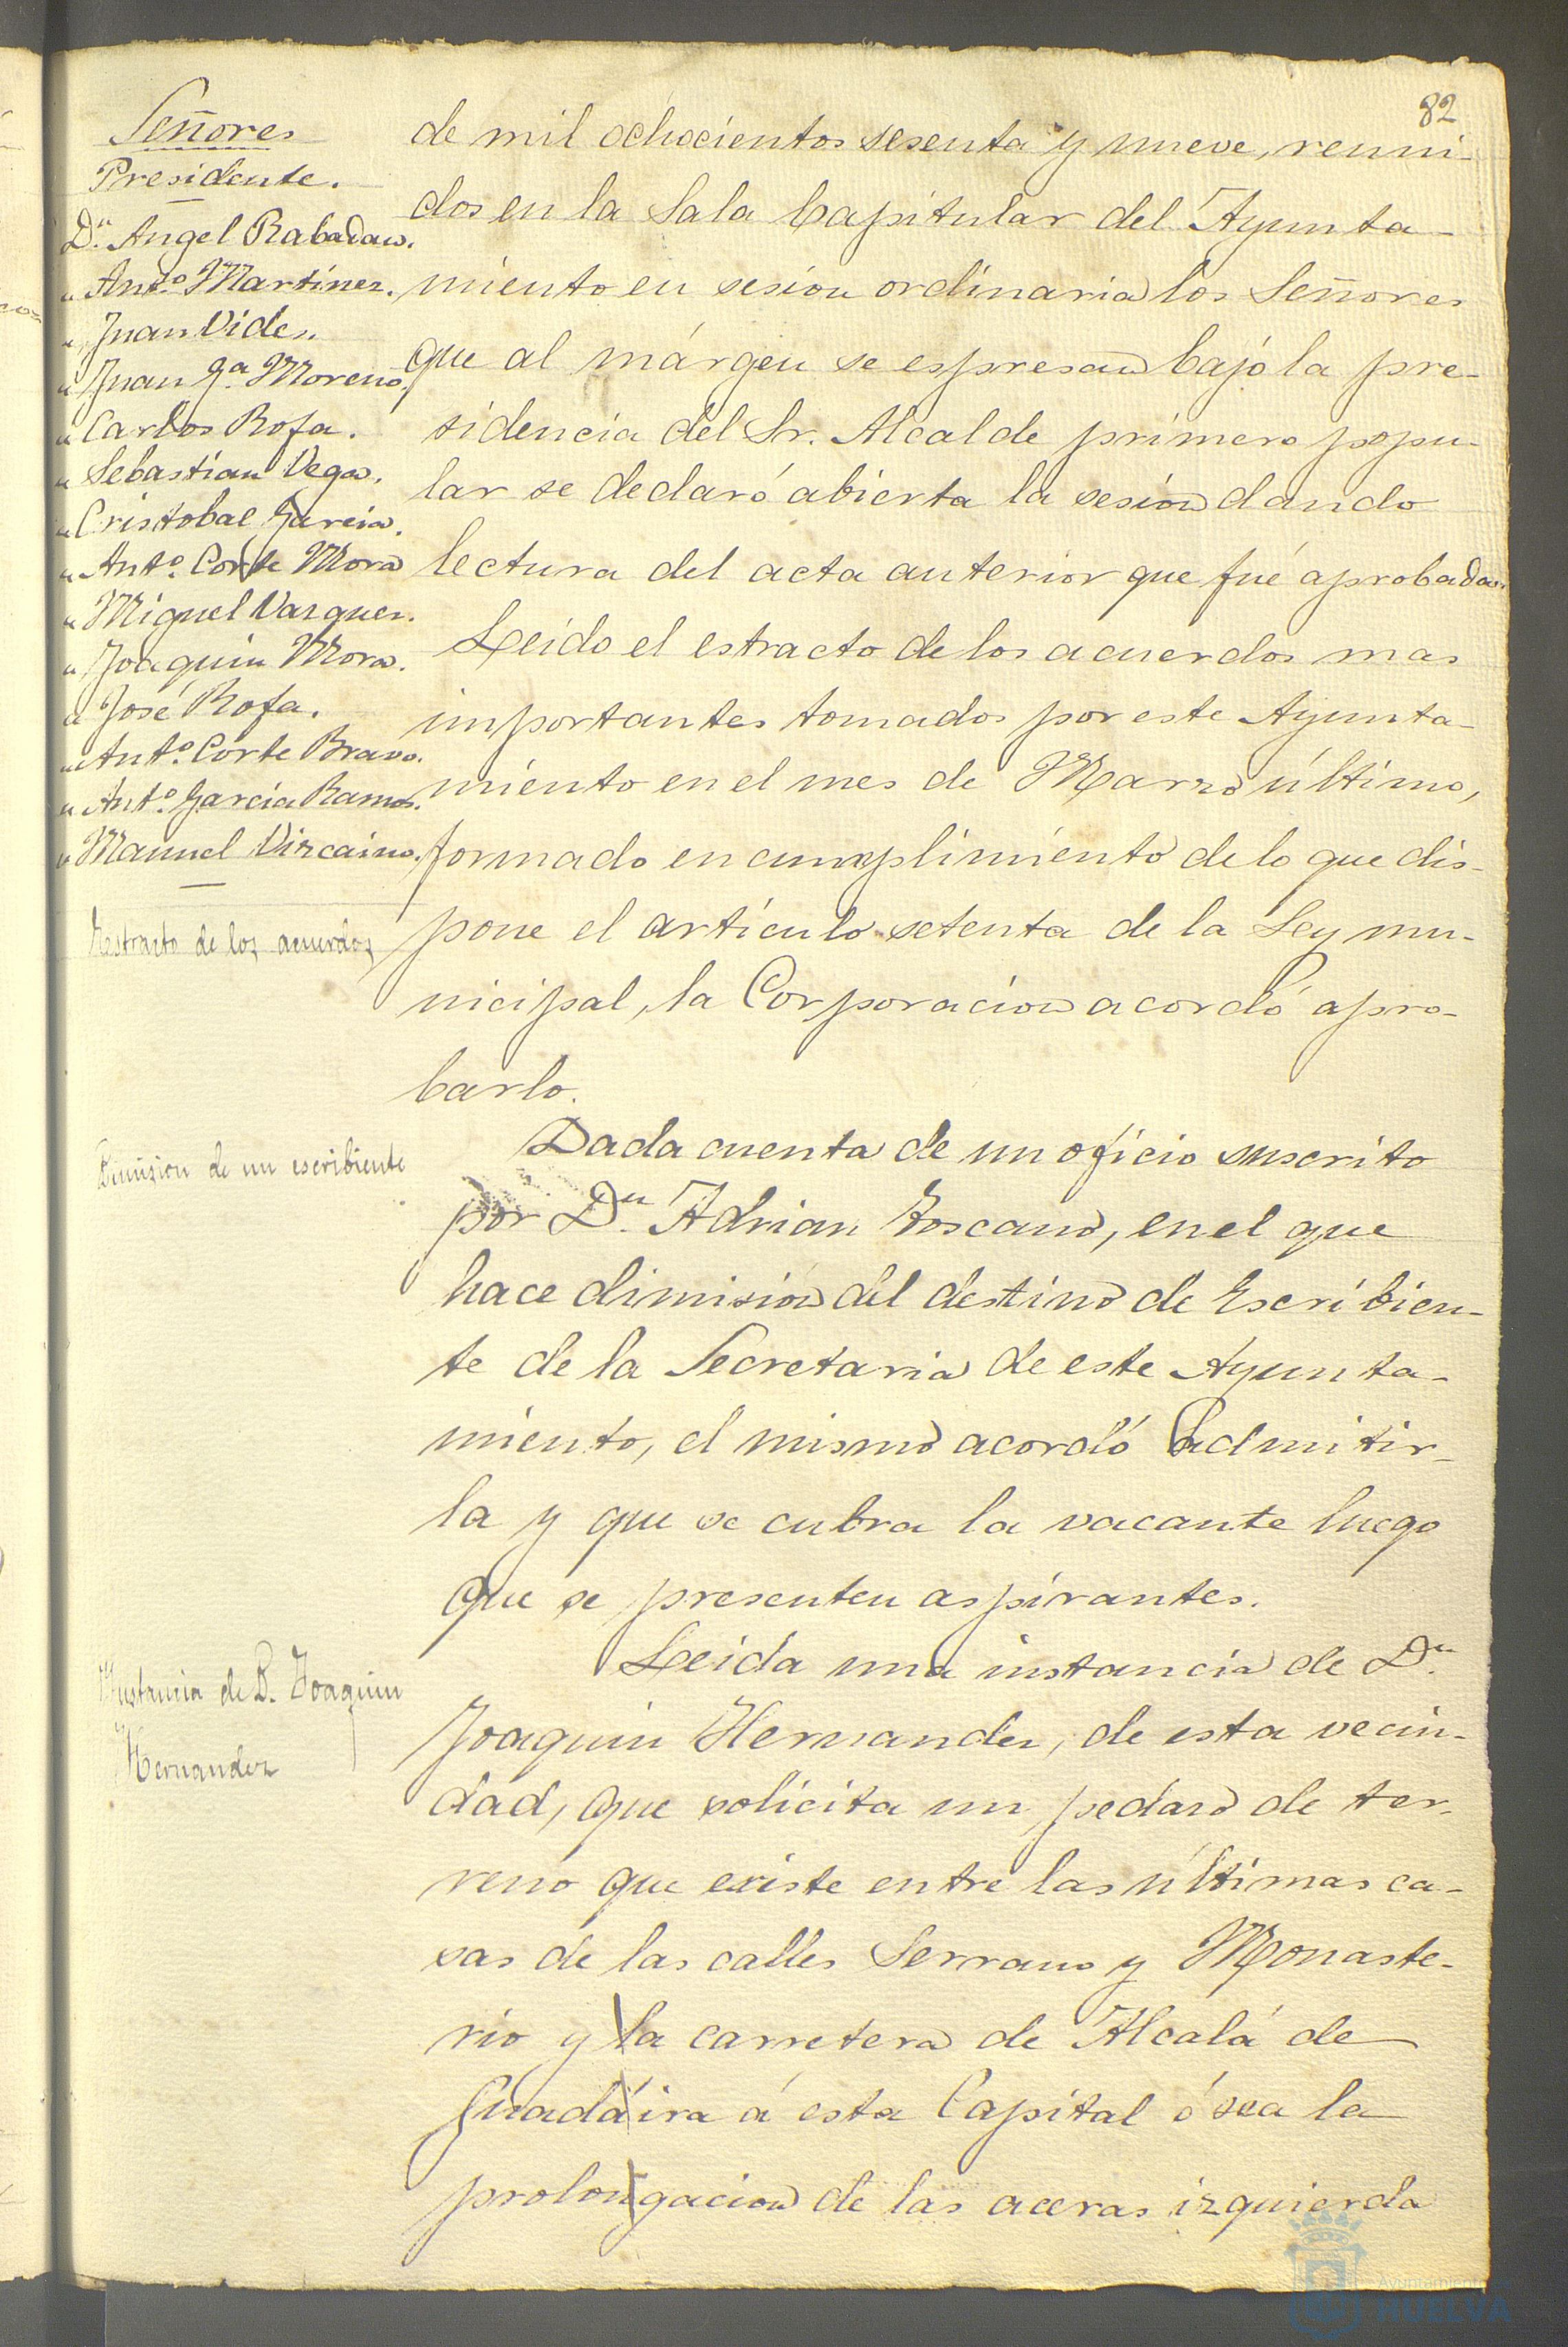 82
Señores
Presidente.
Dn. Angel Rabadan.
" Anto. Martinez.
" Juan Vides.
" Juan Ga. Moreno.
" Carlos Rofa.
" Sebastian Vega.
" Cristobal Garcia.
" Anto. Corte Mora
" Miguel Vazquez.
" Joaquin Mora.
" José Rofa.
" Anto. Corte Bravo.
" Anto. García Ramos.
" Manuel Vizcaino.
Estracto de los acuerdos
Dimision de un escribiente
Instancia de D. Joaquin
Hernandez
de mil ochocientos sesenta y nueve, reuni-
dos en la Sala Capitular del Ayunta-
miento en sesion ordinaria los Señores
que al márgen se espresan bajo la pre-
sidencia del Sr. Alcalde primero popu-
lar se declaró abierta la sesion dando
lectura del acta anterior que fué aprobada.
Leido el estracto de los acuerdos mas
importantes tomados por este Ayunta-
miento en el mes de Marzo último,
formado en cumplimiento de lo que dis-
pone el artículo setenta de la Ley mu-
nicipal, la Corporacion acordó apro-
barlo.
Dada cuenta de un oficio suscrito
por Dn. Adrian Toscano, en el que
hace dimision del destino de Escribien-
te de la Secretaria de este Ayunta-
miento, el mismo acordó admitir-
la y que se cubra la vacante luego
que se presenten aspirantes.
Leida una instancia de Dn.
Joaquin Hernandez, de esta vecin-
dad, que solicita un pedazo de ter-
reno que existe entre las últimas ca-
sas de las calles Serrano y Monaste-
rio y la carretera de Alcalá de
Guadaira á esta Capital ó sea la
prolongacion de las aceras izquierda
Ayuntamiento de
HUELVA